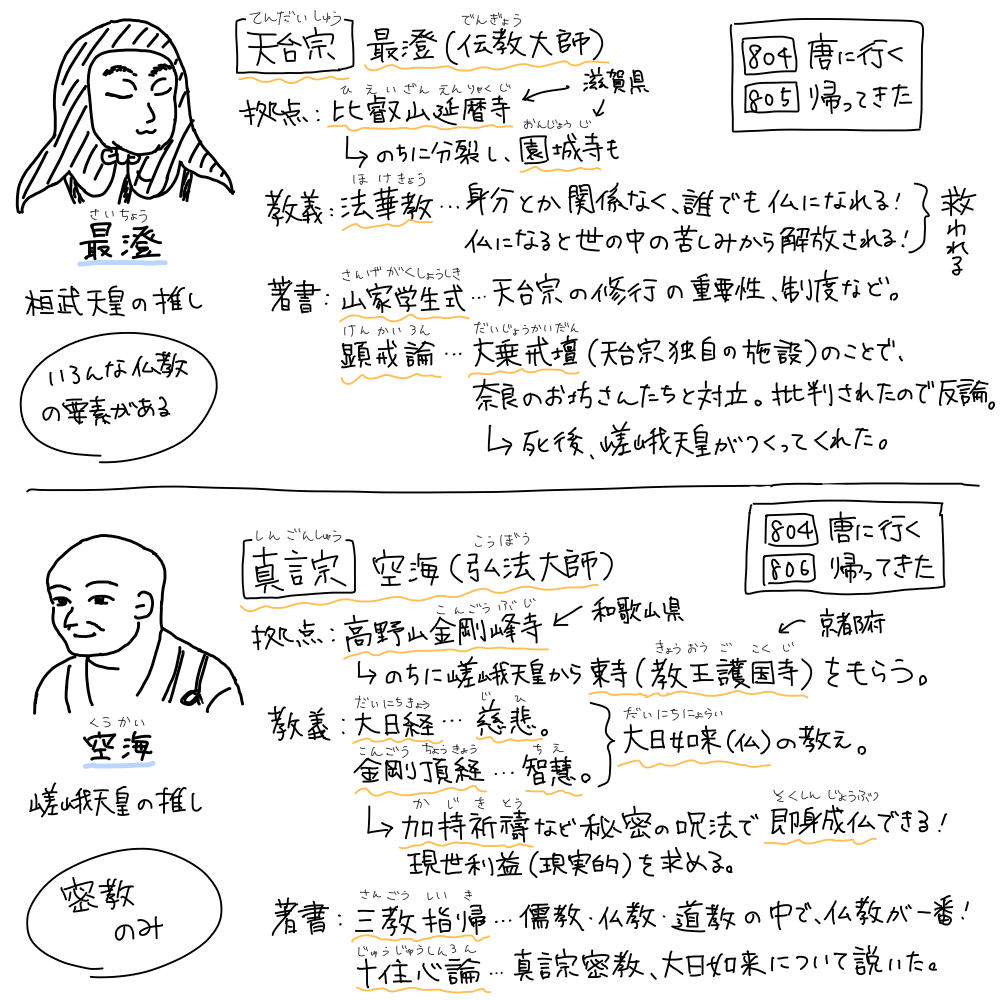 てんだいしゅう でんぎょう
天台宗 最澄(伝教大師)
804 唐に行く
805 帰ってきた
ひえいざんえんりゃくじ 滋賀県
拠点:比叡山延暦寺
おんじょうじ
↳のちに分裂し、園城寺も
ほけきょう
教義:法華教…身分とか関係なく、誰でも仏になれる!
仏になると世の中の苦しみから解放される!
救われる
さいちょう
最澄
桓武天皇の推し
いろんな仏教
の要素がある
さんげがくしょうしき
著書:山家学生式…天台宗の修行の重要性、制度など。
けんかいろん だいじょうかいだん
顕戒論…大乗戒壇(天台宗独自の施設)のことで、
奈良のお坊さんたちと対立。批判されたので反論。
↳死後、嵯峨天皇がつくってくれた。
しんごんしゅう こうぼう
真言宗 空海(弘法大師)
804 唐に行く
806 帰ってきた
こんごうぶじ 和歌山県
拠点:高野山金剛峰寺
京都府
きょうおうごこくじ
↳のちに嵯峨天皇から東寺(教王護国寺)をもらう。
くうかい
空海
嵯峨天皇の推し
密教
のみ
だいにちきょう じひ
教義:大日経…慈悲。
こんごうちょうきょう ちえ
金剛頂経…智慧。
だいにちにょらい
大日如来(仏)の教え。
かじきとう そくしんじょうぶつ
↳加持祈禱など秘密の呪法で即身成仏できる!
現世利益(現実的)を求める。
さんごうしいき
著書:三教指帰…儒教・仏教・道教の中で、仏教が一番!
じゅうじゅうしんろん
十住心論…真言宗密教、大日如来について説いた。